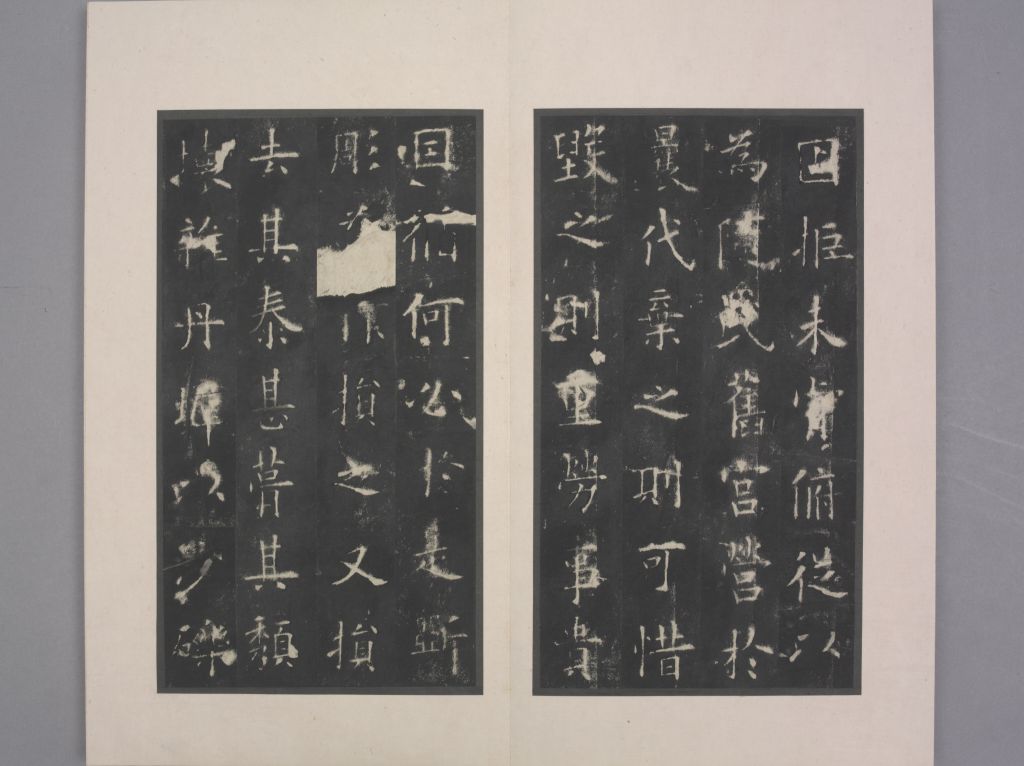 固拒未肯俯從以
為隨氏舊宮營於
曩代棄之則可惜
毀之則重勞事貴
因循何必於是斲
彫為損之又損
去其泰甚葺其頹
壞雜丹墀以沙礫